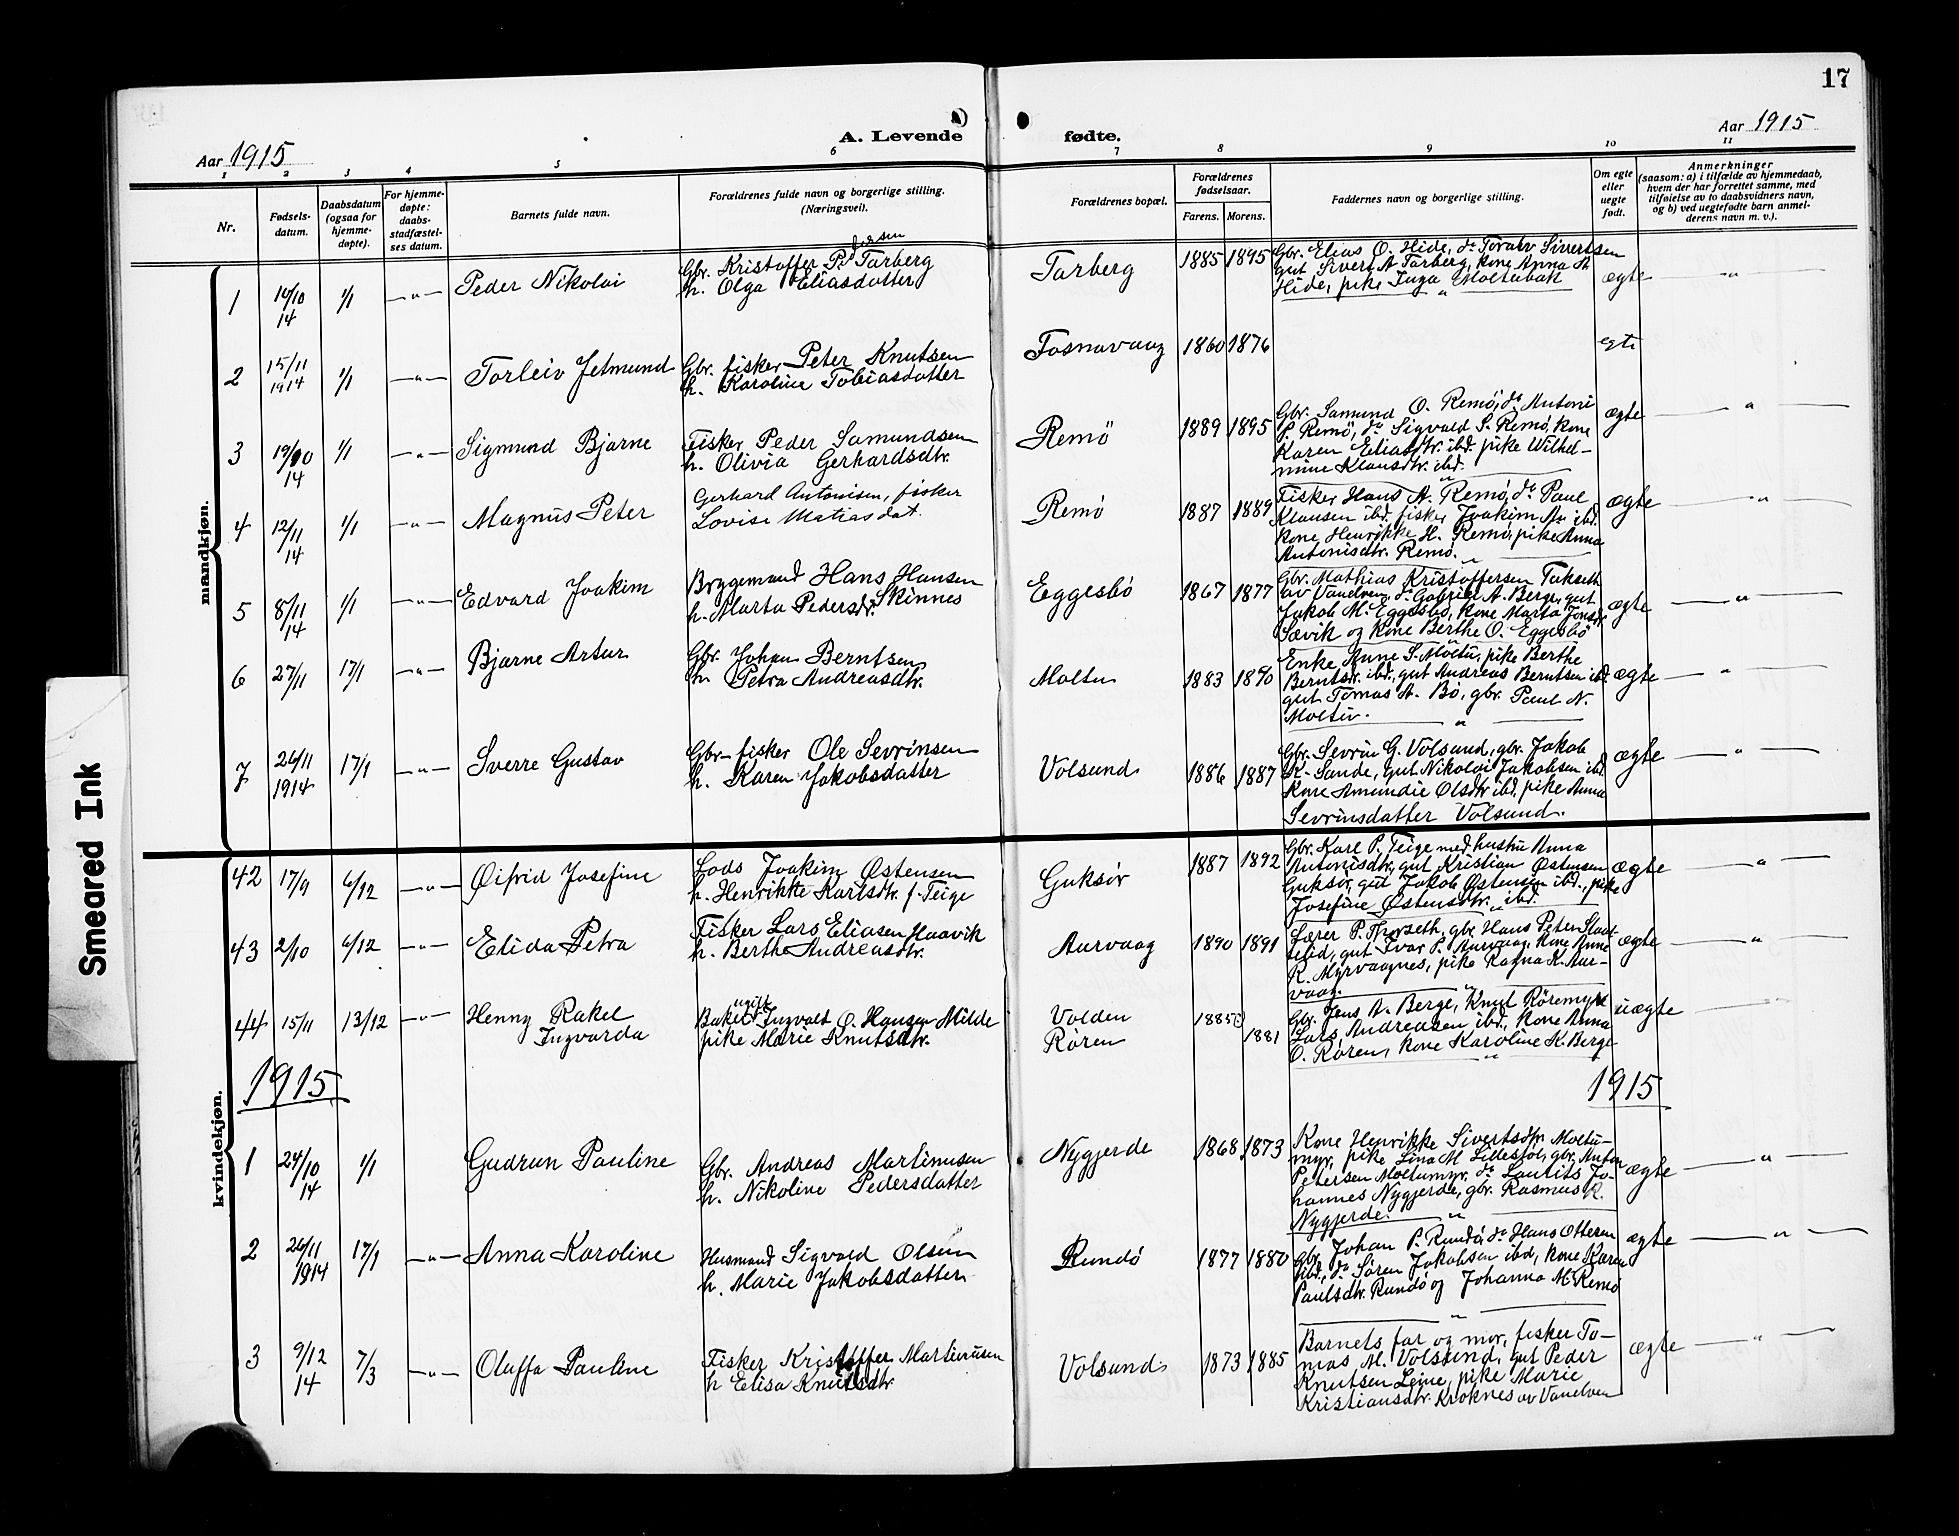 17
Aar 1915
A. Levende fødte.
Aar 1915
1 2 3 4 5 6 7 8 9 10 11
Nr.
Fødsels-
datum.
Daabsdatum
(ogsaa for
hjemme-
døpte).
For hjemme-
døpte:
daabs-
stadfæstel-
ses datum.
Barnets fulde navn.
Forældrenes fulde navn og borgerlige stilling.
(Næringsvei).
Forældrenes bopæl.
Forældrenes
fødselsaar.
Farens. Morens.
Faddernes navn og borgerlige stilling.
Om egte
eller
uegte
født.
Anmerkninger
(saasom: a) i tilfælde av hjemmedaab,
hvem der har forrettet samme, med
tilføielse av to daabsvidners navn,
og b) ved uegtefødte barn anmel-
derens navn m. v.).
mandkjøn.
1 14/10 14 1/1 —"— Peder Nikolai
Gbr. Kristoffer Pedersen Tarberg
h. Olga Eliasdatter
Tarberg 1885 1895
Gbr. Elias O. Hide, do Toralv Sivertsen
gut Sivert A Tarberg, kone Anna A.
Hide, pike Inga Moltubak
ægte —"—
2 15/11 1914 1/1 —"— Torleiv Jetmund
Gbr. fisker Peter Knutsen
h. Karoline Tobiasdatter
Fosnavaag 1860 1876
egte
3 19/10 14 1/1 —"— Sigmund Bjarne
Fisker Peder Samundsen
h. Olivia Gerhardsdtr.
Remö 1889 1895
Gbr. Samund O. Remö, do Antoni
P. Remö, do Sigvald S. Remö, kone
Karen Eliasdtr. ibd. pike Wilhel-
mine Klausdtr. ibd.
ægte —"—
4 12/11 14 1/1 —"— Magnus Peter
Gerhard Antonisen, fisker
Lovise Matiasdat.
Remø 1887 1889
Fisker Hans A. Remø, do Paul
Klausen ibd. fisker Joakim An ibd.
kone Henrikke H. Remø, pike Anna
Antonisdtr. Remø.
ægte —"—
5 8/11 14 1/1 —"— Edvard Joakim
Bryggemand Hans Hansen
h. Marta Pedersdtr. Skinnes
Eggesbö 1867 1877
Gbr. Mathias Kristoffersen Takseth
av Vanelven, do Gabriel A. Berge, gut
Jakob M. Eggesbö, kone Marta Jonsdr.
Sævik og kone Berthe O. Eggesbö
ægte —"—
6 27/11 17/1 —"— Bjarne Artur
Gbr. Johan Berntsen
h. Petra Andreasdtr.
Moltu 1883 1890
Enke Anne S. Moltu, pike Berthe
Berntsdr. ibd., gut Andreas Berntsen ibd.
gut Tomas A. Bö, gbr. Paul N.
Moltu.
ægte —"—
7 26/11 1914 17/1 —"— Sverre Gustav
Gbr-fisker Ole Sevrinsen
h. Karen Jakobsdatter
Volsund 1886 1887
Gbr. Sevrin G. Volsund, gbr. Jakob
K. Sande, gut Nikolai Jakobsen ibd.
kone Amundie Olsdtr ibd., pike Anna
Sevrinsdatter Volsund.
ægte —"—
kvindekjøn.
42 17/9 6/12 —"— Øifrid Josefine
Lods Joakim Østensen
h. Henrikke Karlsdtr. f. Teige
Guksör 1887 1892
Gbr. Karl P. Teige med hustru Anna
Antonisdtr, gut Kristian Østensen
Guksör, gut Jakob Østensen ibd., pike
Josefine Østensdtr. ibd.
ægte —"—
43 2/10 6/12 —"— Elida Petra
Fisker Lars Eliasen Haavik
h. Berthe Andreasdtr.
Aurvaag 1890 1891
Lærer P. Thorseth, gbr. Hans Peter Staal-
gut Ivar P. Aurvaag, kone Anne
R. Myrvaagnes, pike Ragna K. Aur-
vaag.
ægte —"—
44 15/11 13/12 —"— Henny Rakel
Ingvarda
ugift
Baker Ingvald O. Hansen Milde
pike Marie Knutsdtr.
Volden
Røren
1885 1881
Gbr. Jens A. Berge, Knut Röremyr
Lars Andreasen ibd., kone Anna
O. Røren, kone Karoline K. Berge
uægte —"—
1915 1915
1 24/10 14 1/1 Gudrun Pauline
Gbr. Andreas Martinusen
h. Nikoline Pedersdatter
Nygjerde 1868 1873
Kone Henrikke Sivertsdtr Moltu-
myr, pike Lina M. gbr. Anton
Petersen Moltumyr, do Lauits Jo-
hannes Nygjerde, gbr. Rasmus R.
Nygjerde.
ægte —"—
2 26/11 1914 17/1 —"— Anna Karoline
Husmand Sigvald Olsen
h. Marie Jakobsdatter
Rundö 1877 1880
Gbr. Johan P. Rundö, do Hans Otteren
ibd., do Søren Jakobsen ibd, kone Karen
Paulsdtr. Rundö og Johanna M. Remö
ægte —"—
3 9/12 14 7/3 —"— Oluffa Pauline
Fisker Kristoffer Martinusen
h Elisa Knutsdtr
Volsund 1873 1885
Barnets far og mor, fisker To-
mas M. Volsund, gut Peder
Knutsen Leine, pike Marie
Kristiansdtr. Kroknes av Vanelven
ægte —"—
Smeared Ink